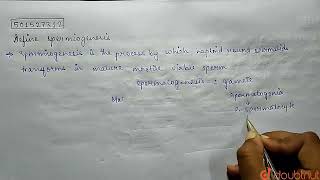 501527312
Define spermiogenesis
→ Spermiogenesis is the process by which haploid round spermatids
transforms in mature, motile viable sperm
spermatogenesis : gamete
Spermatogonia
2° spermatocyte
doubtnut